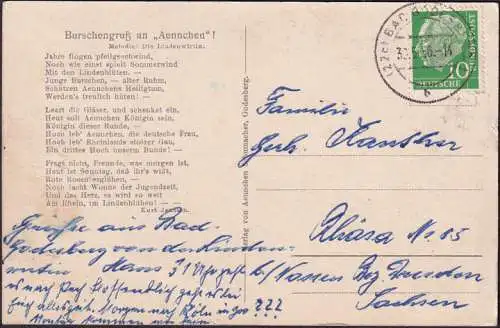 Burschengruß an „Aennchen"!
Melodie: Die Lindenwirtin.
Jahre flogen pfeilgeschwind,
Noch wie einst spielt Sommerwind
Mit den Lindenblüten. —
Junge Burschen, — alter Ruhm,
Schützen Aennchens Heiligtum,
Werden's treulich hüten! —
Leert die Gläser, und schenket ein,
Heut soll Aennchen Königin sein,
Königin dieser Runde, —
Hoch leb' Aennchen, die deutsche Frau,
Hoch leb' Rheinlands stolzer Gau,
Ein drittes Hoch unserm Bunde! —
Fragt nicht, Freunde, was morgen ist,
Heut ist Sonntag, daß ihr's wißt,
Rote Rosen erglühen, —
Noch lacht Wonne der Jugendzeit,
Und das Herz, es wird so weit
Am Rhein, im Lindenblühen! —
Kurt
Verlag von Aennchen Schumacher, Godenberg.
(22c) BAD GODESBERG
DEUTSCHE
10
Familie
Gerh.
No. 85
b/ Nossen Bez Dresden
Sachsen
Grüße aus Bad-
Godesberg von der Linden-
wirtin Hans
es nach Hoffentlich geht es bei
Euch alles Morgen nach Köln
Montag kommen wir heim